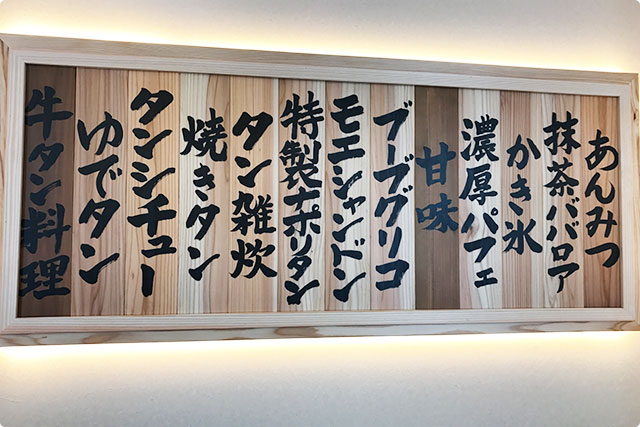 牛タン料理
ゆでタン
タンシチュー
焼きタン
タン雑炊
特製ナポリタン
モエシャンドン
ブーブグリコ
甘味
濃厚パフェ
かき氷
抹茶ババロア
あんみつ